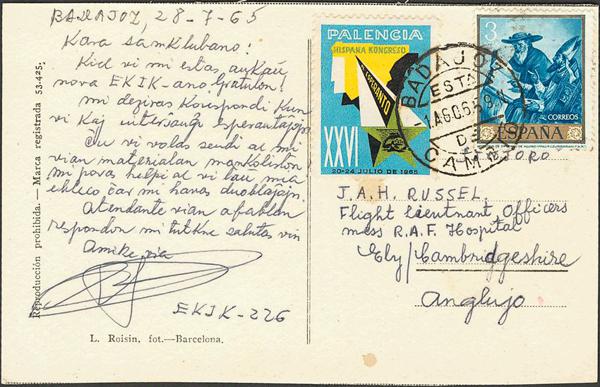 BADAJOZ, 28-7-65
Kara samklubano:
Kiel vi mi estas ankaŭ
nova EKIK-ano, Gratulon!
mi deziras Korespondi Kun
vi Kaj interŝanĝi esperantaĵojn.
Ĉu vi volas sendi al mi
vian materialan mankoliston
mi povas helpi al vi laŭ mia
ebleco ĉar mi havas duoblaĵojn.
Atendante vian afablan
respondon mi tutkne salutas vin
Amike via
EKIK-226
L. Roisin, fot.—Barcelona.
Reproducción prohibida. — Marca registrada 53.425.
PALENCIA
HISPANA KONGRESO
ESPERANTO
XXVI
20-24 JULIO DE 1965
BADAJOZ
ESTA
1 AGO 65
D
CAM
3
CORREOS
ESPAÑA
J.A.H. RUSSEL
Flight Lieutnant Officers
mess R.A.F. Hospital
Ely/Cambridgeshire
Anglujo